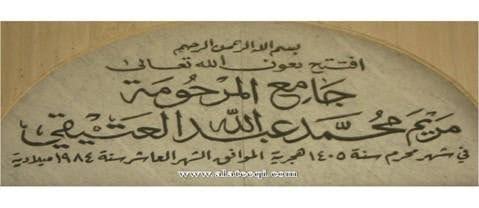 بسم الله الرحمن الرحيم
افتتح بعون الله تعالى
جامع المرحومة
مريم محمد عبدالله العتيقي
في شهر محرم سنة ١٤٠٥ هجرية الموافق الشهر العاشر سنة ١٩٨٤ ميلادية
www.alateeqi.com